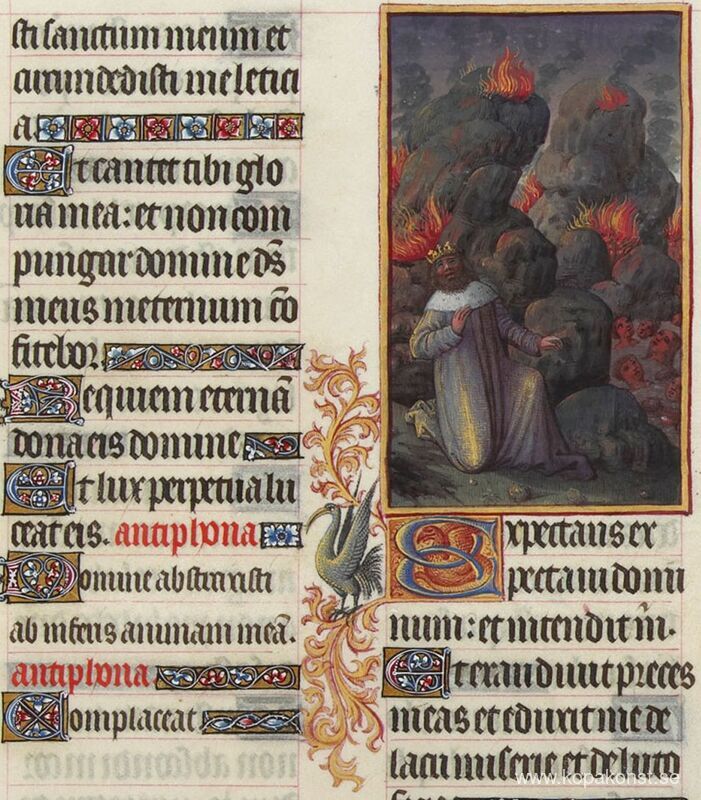 sti sanctum meum et
circundedisti me letici
a
Et cantet tibi glo
ria mea: et non com
pungar domine ds̄
meus in eternum cō
fitebor
Requiem eternā
dona eis domine
Et lux perpetua lu
ceat eis. antiphona
Domine abstraxisti
ab inferis animam meā.
antiphona
Complaceat
Expectans ex
pectaui domi
num: et intendit m̄.
Et exaudiuit preces
meas et eduxit me de
lacu miserie et de luto
www.kopakonst.se